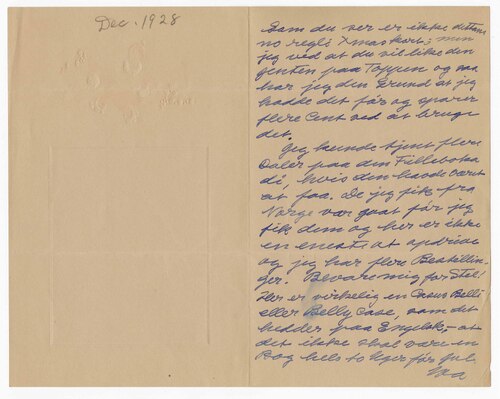 Dec. 1928
Som du ser er ikke dettans
no regli Xmaskort; men
jeg ved at du vil like den
jenten paa Toppen og saa
har jeg den Grund at jeg
hadde det før og sparer
flere Cent ved at bruge
det.
Jeg kunde tjent flere
Daler paa den Filleboka
di, hvis den havde vært
at faa. De jeg fik fra
Norge var gaat før jeg
fik dem og her er ikke
en eneste at opdrive
og jeg har flere Bestillin-
ger. Bevare mig for Stel!
Her er virkelig en Casus Belli
eller Belly Case, som det
hedder paa Engelsk, - at
det ikke skal være en
Bog hels to Uger før Jul.